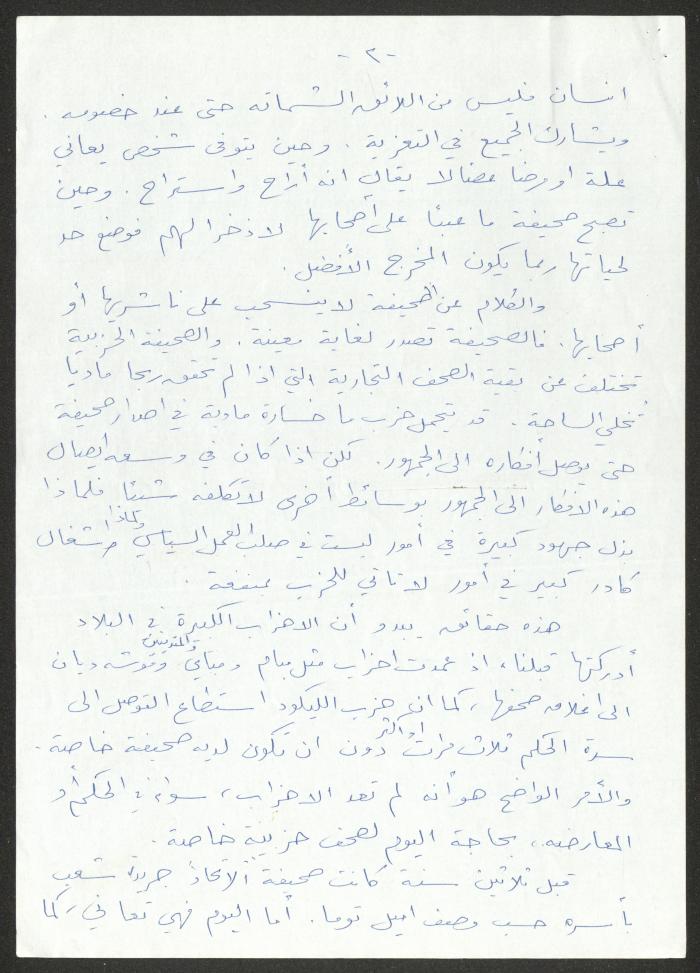 -٢-
انسان فليس من اللائق الشماته حتى عند خصومه .
ويشارك الجميع في التعزية . وحين يتوفى شخص يعاني
علة او مرضا عضالا يقال انه أراح واستراح . وحين
تصبح صحيفة ما عبئا على أصحابها لا ذخرا لهم فوضع حد
لحياتها ربما يكون المخرج الأفضل .
والكلام عن الصحيفة لا ينسحب على ناشريها أو
أصحابها . فالصحيفة تصدر لغاية معينة . والصحيفة الحزبية
تختلف عن بقية الصحف التجارية التي اذا لم تحقق ربحا ماديا
تُخلي الساحة . قد يتحمل حزب ما خسارة مادية في اصدار صحيفة
حتى يوصل أفكاره الى الجمهور . لكن اذا كان في وسعه ايصال
هذه الافكار الى الجمهور بوسائط أخرى لا تكلفه شيئا فلماذا
بذل جهود كبيرة في أمور ليست في صلب العمل السياسي ولماذا اشغال
كادر كبير في أمور لا تاتي للحزب بمنفعة .
هذه حقائق يبدو أن الاحزاب الكبيرة في البلاد
أدركتها قبلنا ، اذ عمدت احزاب مثل مبام ومباي والمتدينين وموشه ديان
الى اغلاق صحفها ، كما ان حزب الليكود استطاع التوصل الى
سدة الحكم ثلاث مرات او اكثر دون ان تكون لديه صحيفة خاصة .
والأمر الواضح هو أنه لم تعد الاحزاب ، سواء في الحكم أو
المعارضه ، بحاجة اليوم لصحف حزبية خاصة .
قبل ثلاثين سنة كانت صحيفة الاتحاد جريدة شعب
بأسره حسب وصف اميل توما . أما اليوم فهي تعاني ، كما